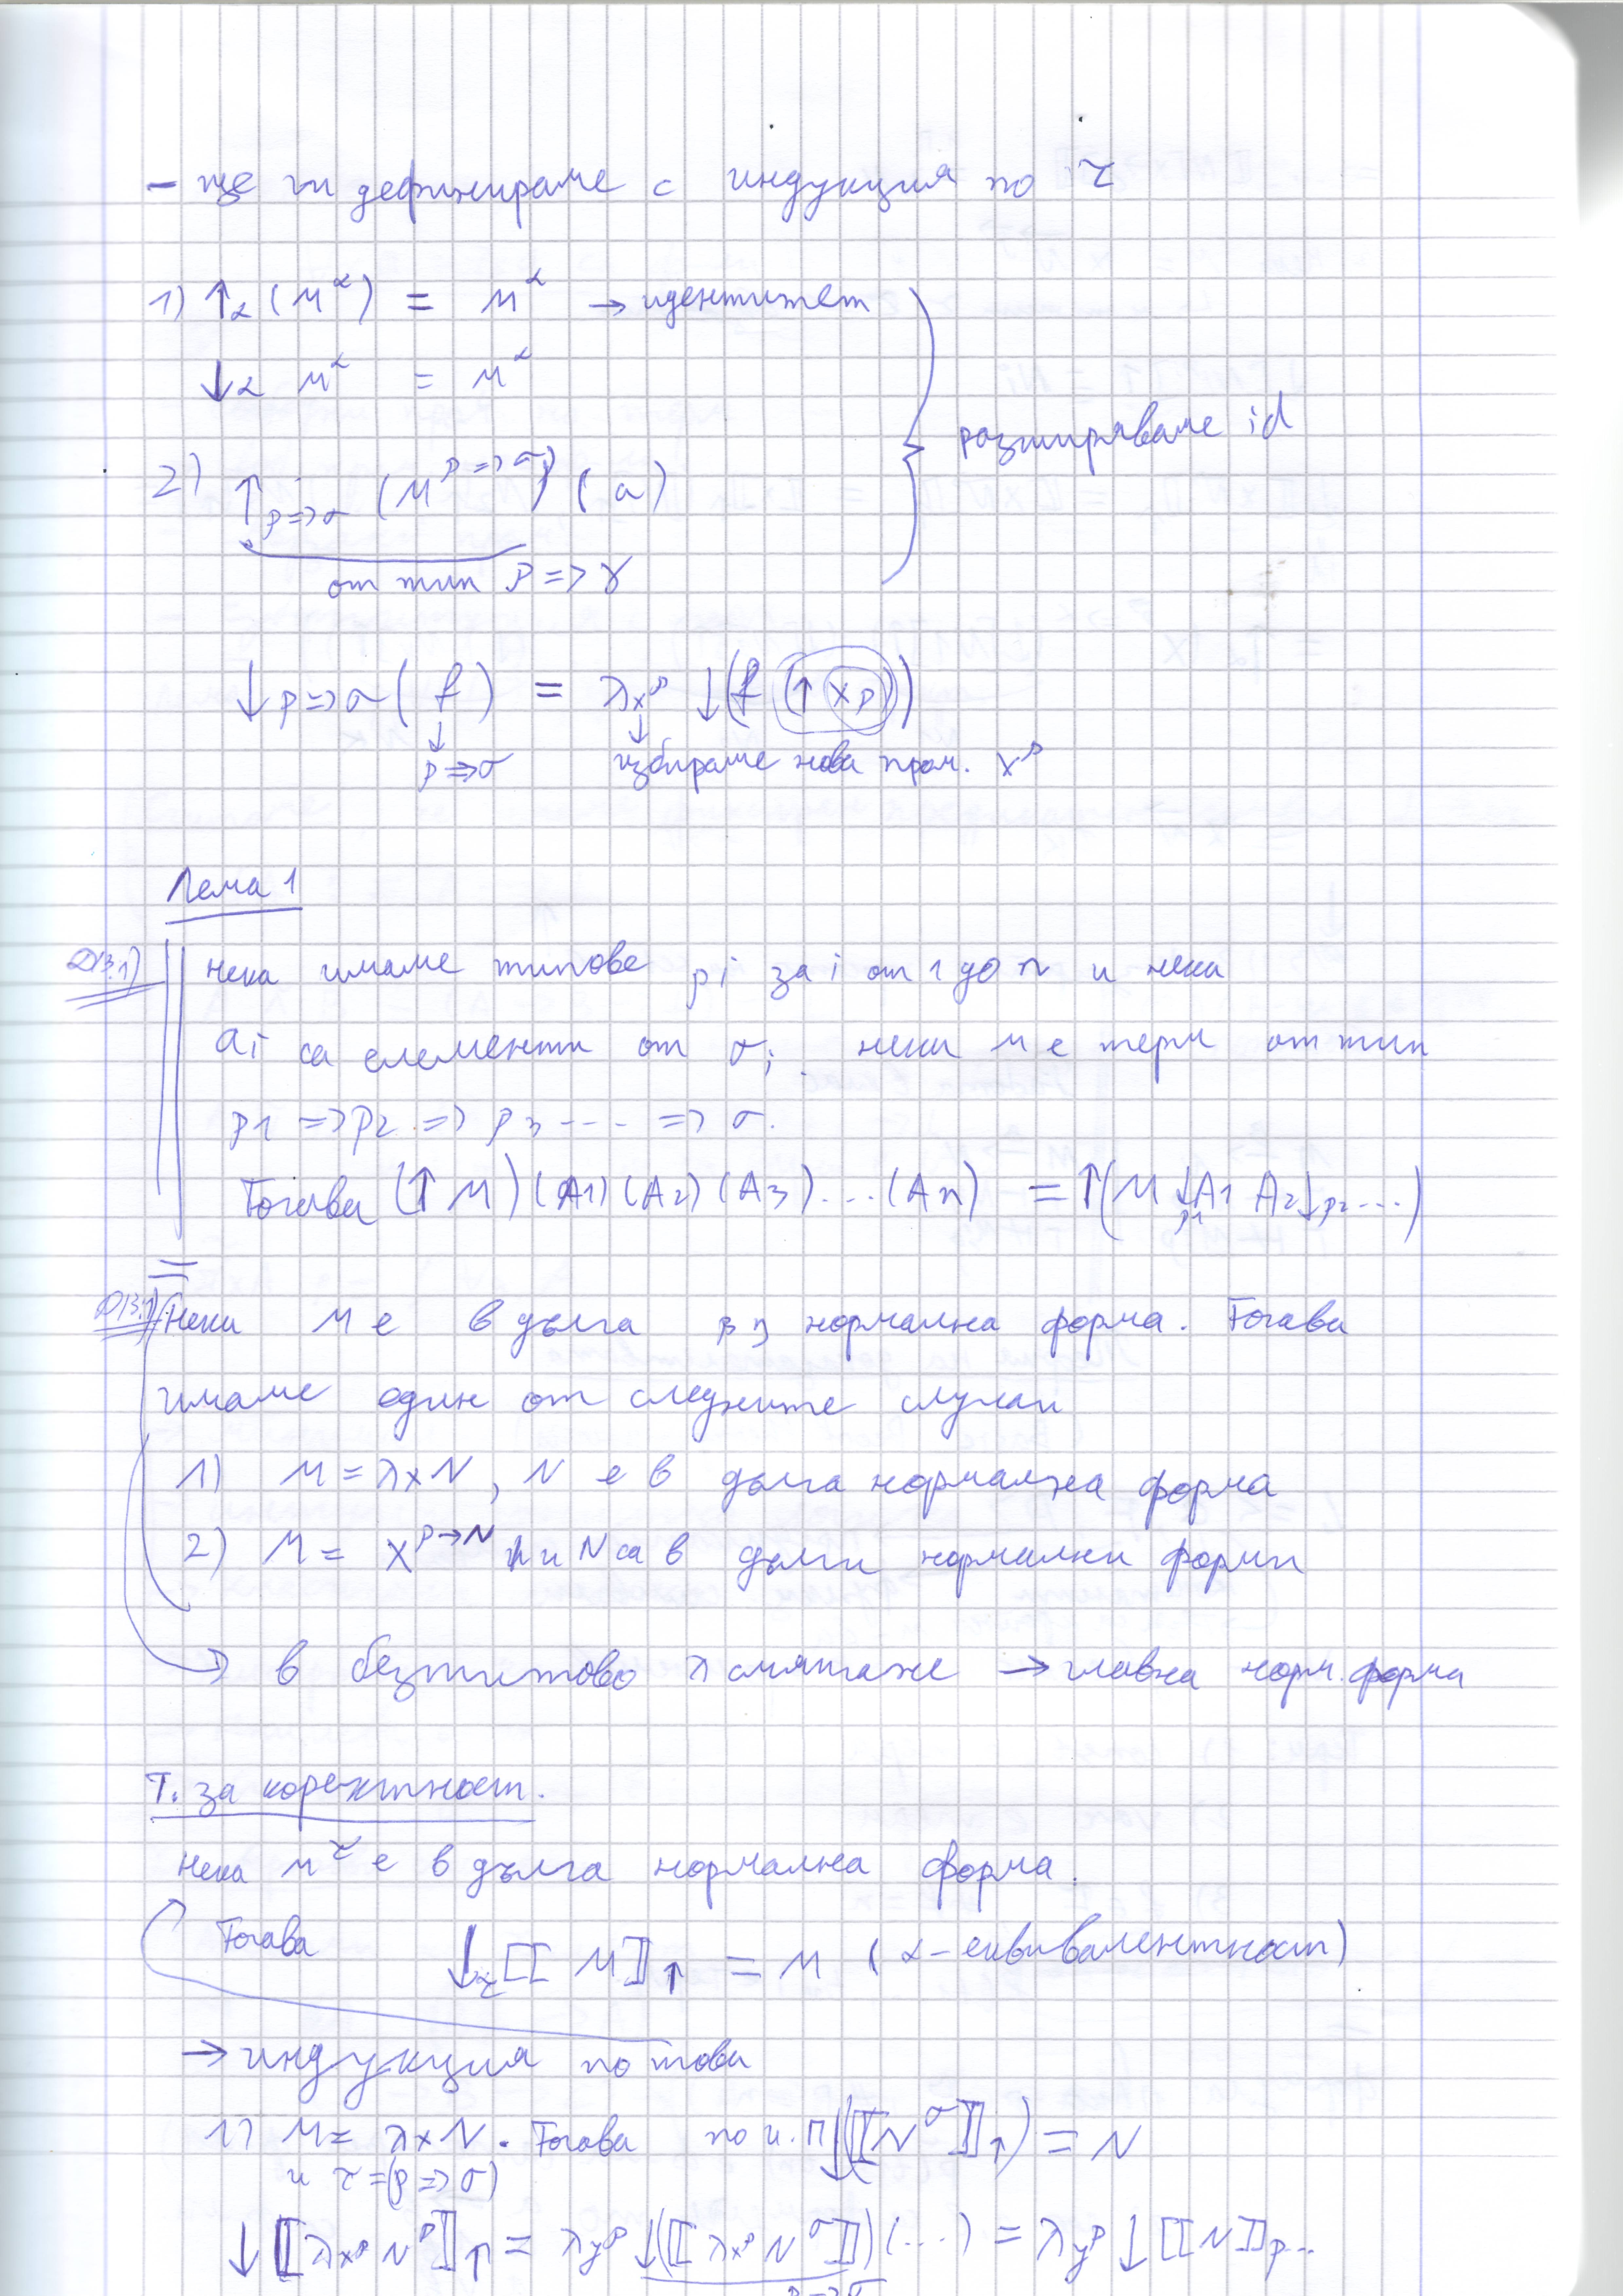 – ще ги дефинираме с индукция по τ
1) ↑α (M^α) = M^α → идентитет
↓α M^α = M^α
разширяваме id
2) ↑ρ=>σ (M^ρ=>σ) (a)
от тип ρ => γ
↓ρ=>σ ( f ) = λx^ρ ↓(f (↑ xρ))
↓ ↓
ρ=>σ избираме нова пром. x^ρ
Лема 1
нека имаме типове ρi за i от 1 до n и нека
ai са елементи от σi нека M е терм от тип
ρ1 => ρ2 => ρ3 ---- => σ.
Тогава (↑ M) (A1) (A2) (A3) ... (An) = ↑(M ↓ρ1 A1 A2 ↓ρ2 ...)
Нека M е в дълга βη нормална форма. Тогава
имаме един от следните случаи
1) M = λx N, N е в дълга нормална форма
2) M = x^ρ→N и N са в дълги нормални форми
→ в безтипово λ смятане → главна норм. форма
Т. за коректност.
Нека M^τ е в дълга нормална форма.
Тогава ↓τ [[ M ]]↑ = M (α-еквивалентност)
→ индукция по това
1) M = λx N. Тогава по и.п ↓([[N^σ]]↑) = N
и τ = (ρ => σ)
↓[[λx^ρ N^ρ]]↑ = λy^ρ ↓([[λx^ρ N^σ]])(...) = λy^ρ ↓ [[N]]ρ...